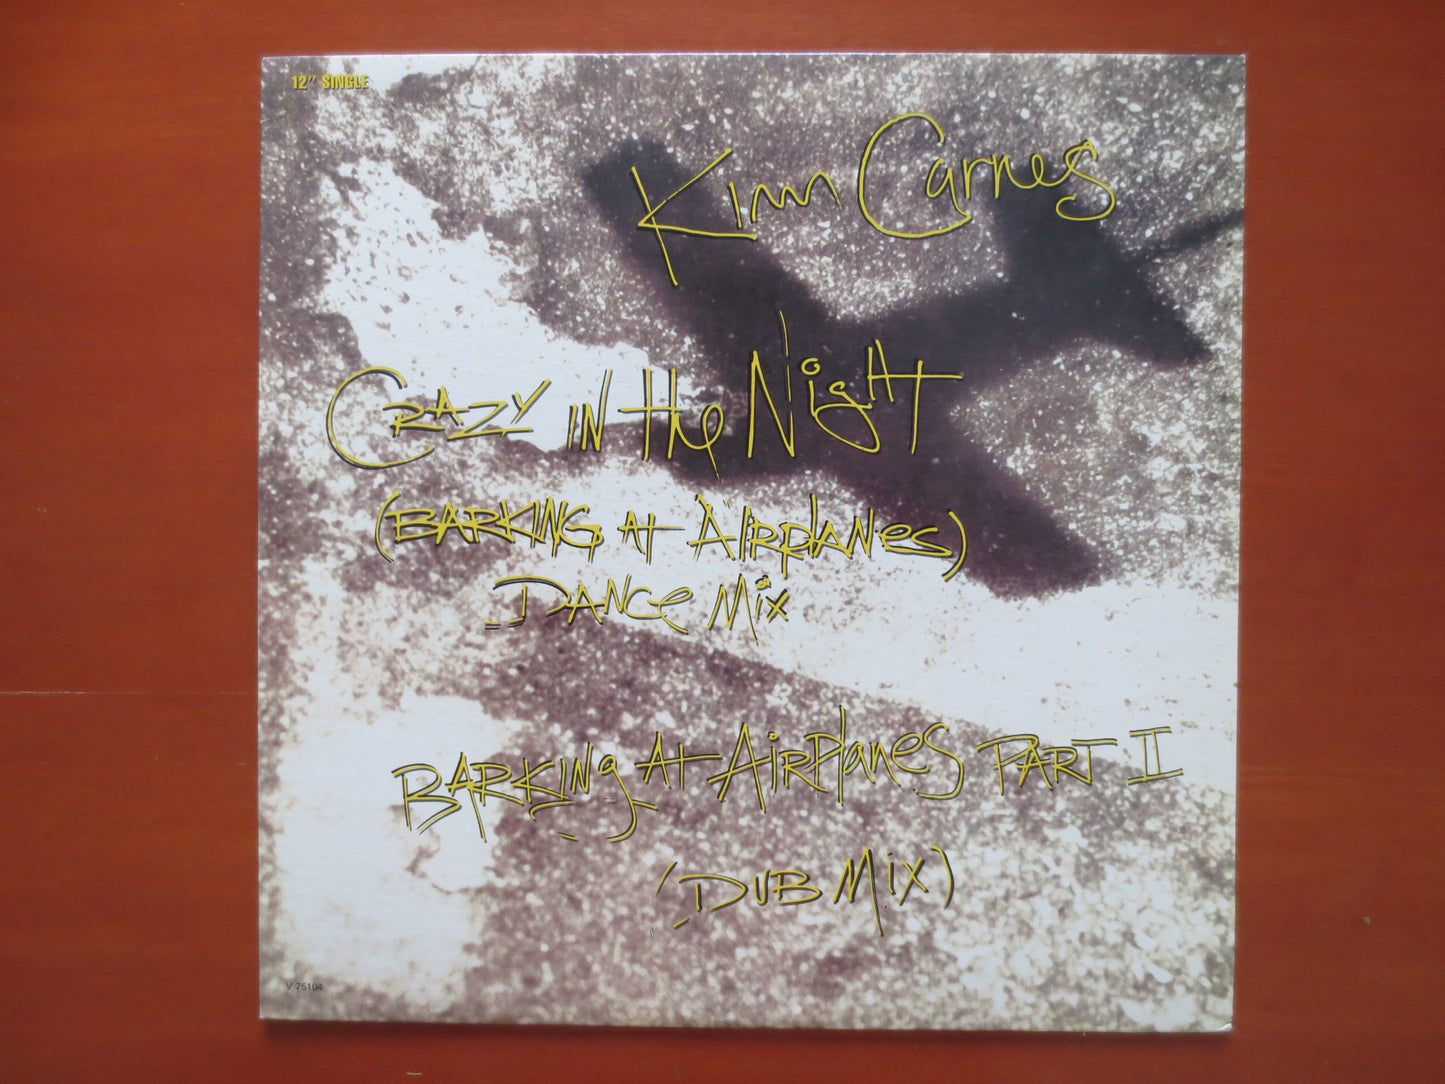 12" SINGLE
Kim Carnes
CRAZY IN the Night
(BARKING At AIRPlANes)
DANCe Mix
BARKINg At AIRPlanes PART II
(DUB Mix)
V 75104